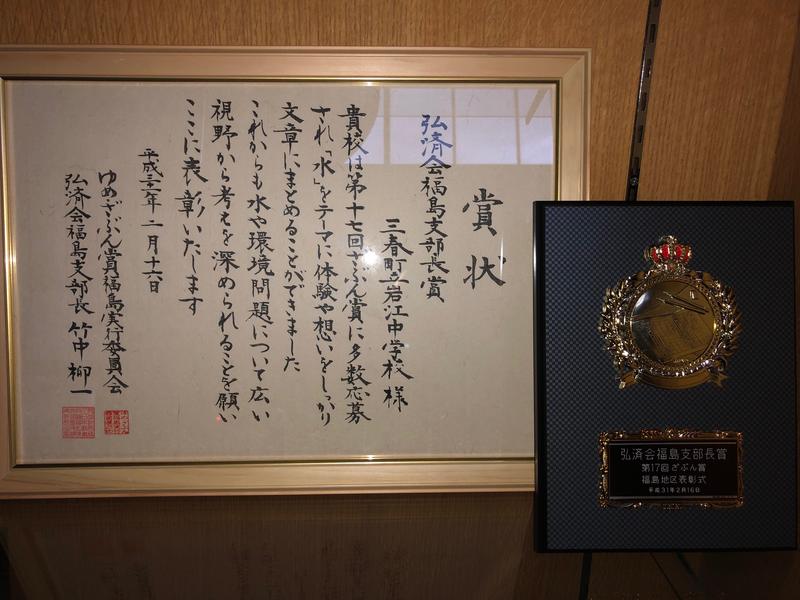 賞状
弘済会福島支部長賞
三春町立岩江中学校 様
貴校は第十七回ざぶん賞に多数応募
され「水」をテーマに体験や想いをしっかり
文章にまとめることができました
これからも水や環境問題について広い
視野から考えを深められることを願い
ここに表彰いたします
平成三十一年二月十六日
ゆめ・ざぶん賞福島実行委員会
弘済会福島支部長 竹中柳一
弘済会福島支部長賞
第17回 ざぶん賞
福島地区表彰式
平成31年2月16日